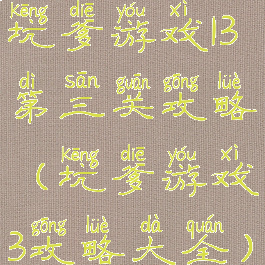 kēng diē yóu xì
坑爹游戏13
dì sān guān gōng lüè
第三关攻略
kēng diē yóu xì
(坑爹游戏
gōng lüè dà quán
3攻略大全)